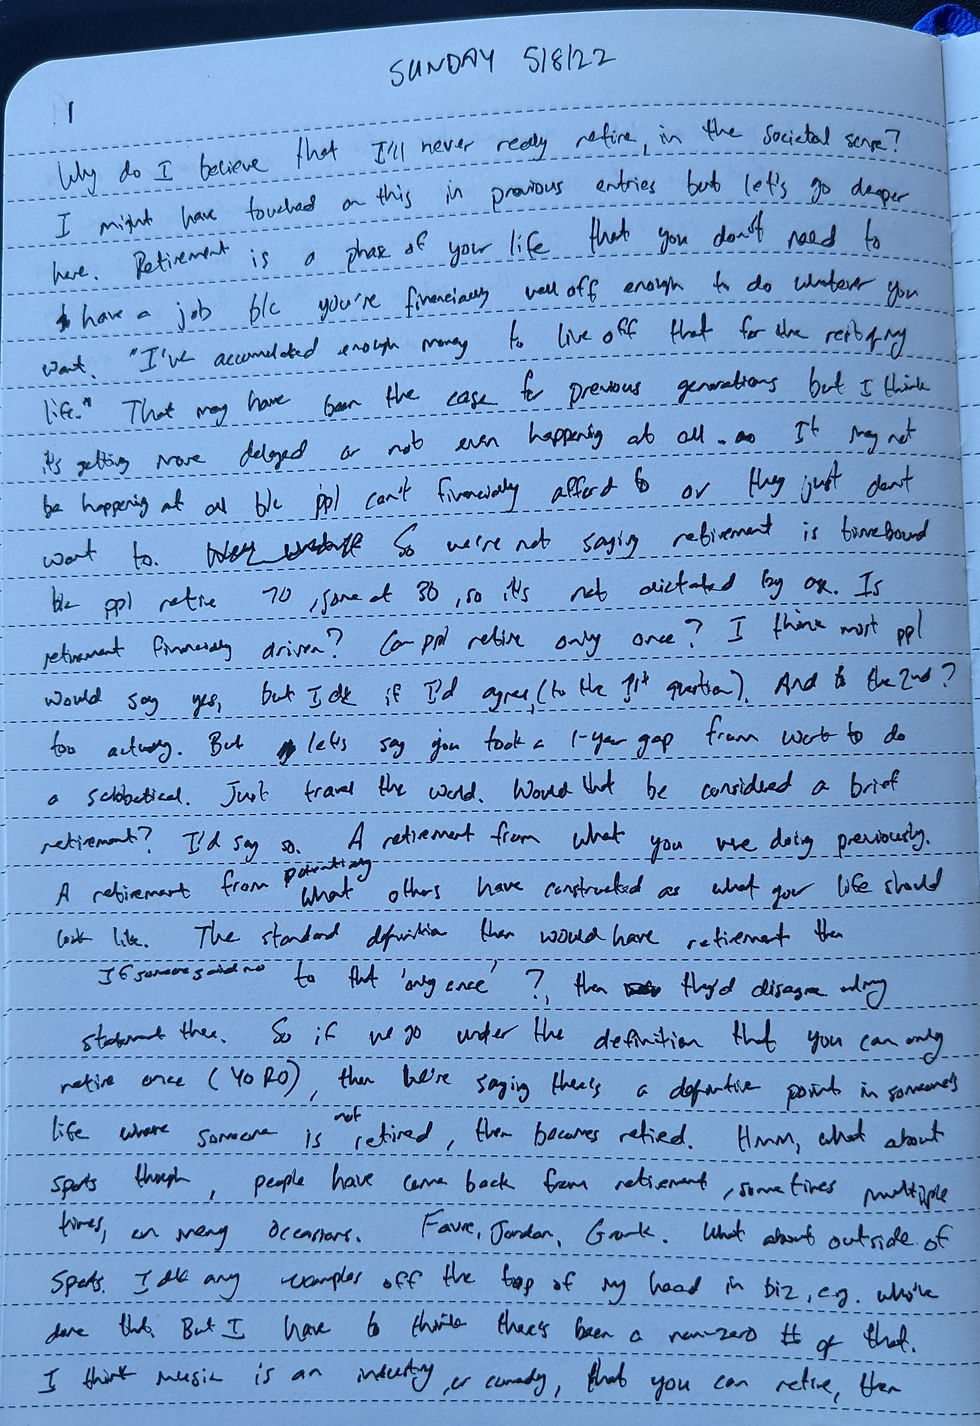 SUNDAY 5/8/22
1
Why do I believe that I'll never really retire, in the societal sense?
I might have touched on this in previous entries but let's go deeper
here. Retirement is a phase of your life that you don't need to
have a job b/c you're financially well off enough to do whatever you
want. "I've accumulated enough money to live off that for the rest of my
life." That may have been the case for previous generations but I think
it's getting more delayed or not even happening at all. It may not
be happening at all b/c ppl can't financially afford to or they just don't
want to. So we're not saying retirement is timebound
b/c ppl retire 70, some at 30, so it's not dictated by age. Is
retirement financially driven? Can ppl retire only once? I think most ppl
would say yes, but I dk if I'd agree, (to the 1st question). And to the 2nd?
too actually. But let's say you took a 1-year gap from work to do
a sabbatical. Just travel the world. Would that be considered a brief
retirement? I'd say so. A retirement from what you were doing previously.
A retirement from potentially what others have constructed as what your life should
look like. The standard definition then would have retirement then
If someone said no to that 'only once'?, then they'd disagree w/ my
statement there. So if we go under the definition that you can only
retire once (YORO), then we're saying there's a definitive point in someone's
life where someone is not retired, then becomes retired. Hmm, what about
sports though, people have come back from retirement, sometimes multiple
times, on many occasions. Favre, Jordan, Gronk. What about outside of
sports. I dk any examples off the top of my head in biz, e.g. who've
done that. But I have to think there's been a non-zero # of that.
I think music is an industry, or comedy, that you can retire, then